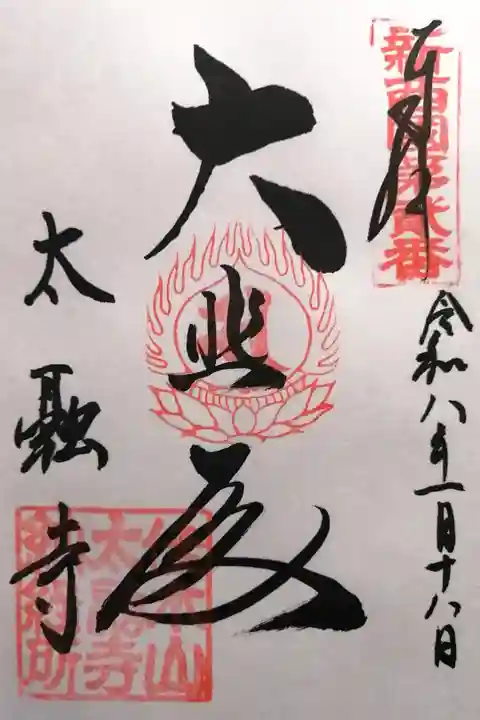 新西國第貳番
奉拝
令和八年一月十八日
大悲殿
太融寺
佳木山
太融寺
納経所